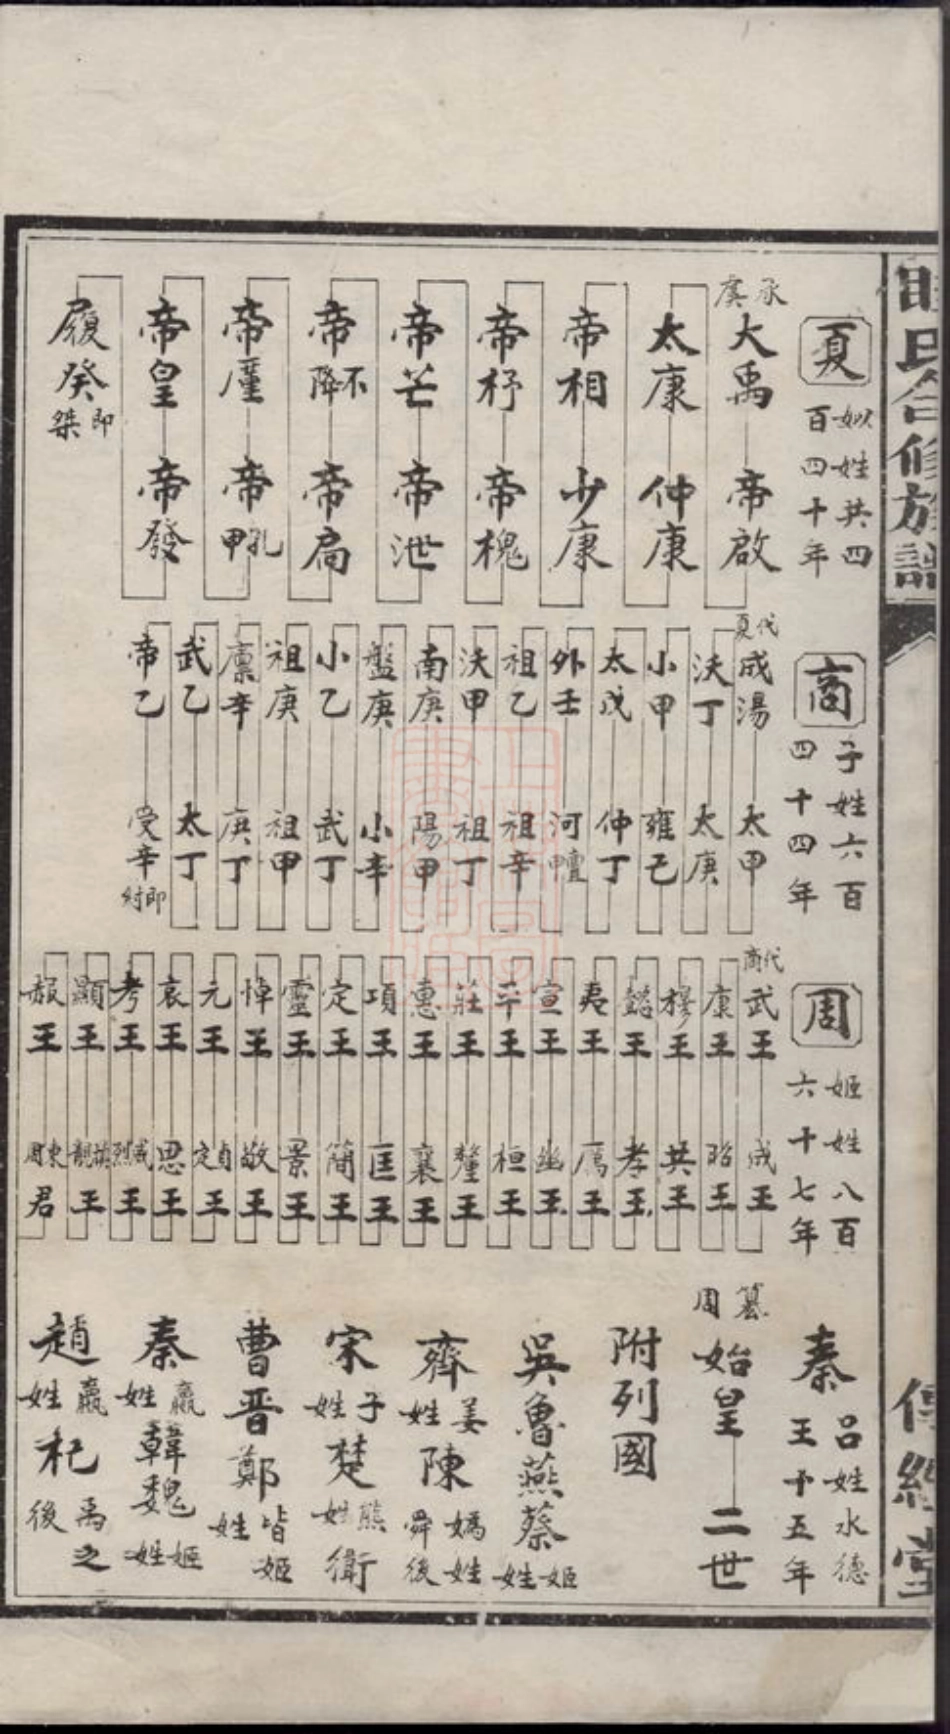 氏合修族譜
夏
姒姓共四
百四十年
承虞
大禹 帝啟
太康 仲康
帝相 少康
帝杼 帝槐
帝芒 帝泄
帝不降 帝扃
帝廑 帝孔甲
帝皇 帝發
履癸即桀
商
子姓六百
四十四年
代夏
成湯 太甲
沃丁 太庚
小甲 雍己
太戊 仲丁
外壬 河亶
祖乙 祖辛
沃甲 祖丁
南庚 陽甲
盤庚 小辛
小乙 武丁
祖庚 祖甲
廪辛 庚丁
武乙 太丁
帝乙 受辛即紂
周
姬姓八百
六十七年
代商
武王 成王
康王 昭王
穆王 共王
懿王 孝王
夷王 厲王
宣王 幽王
平王 桓王
莊王 釐王
惠王 襄王
項王 匡王
定王 簡王
靈王 景王
悼王 敬王
元王 貞定王
哀王 思王
考王 威烈王
顯王 慎靚王
赧王 東周君
秦
呂姓水德
王十五年
篡周
始皇 二世
附列國
吳魯燕蔡姬姓
齊姜姓陳媯姓舜後
宋子姓楚熊姓衛
曹晋鄭皆姬姓
秦嬴姓韓魏姬姓
趙嬴姓杞禹之後
傳經堂